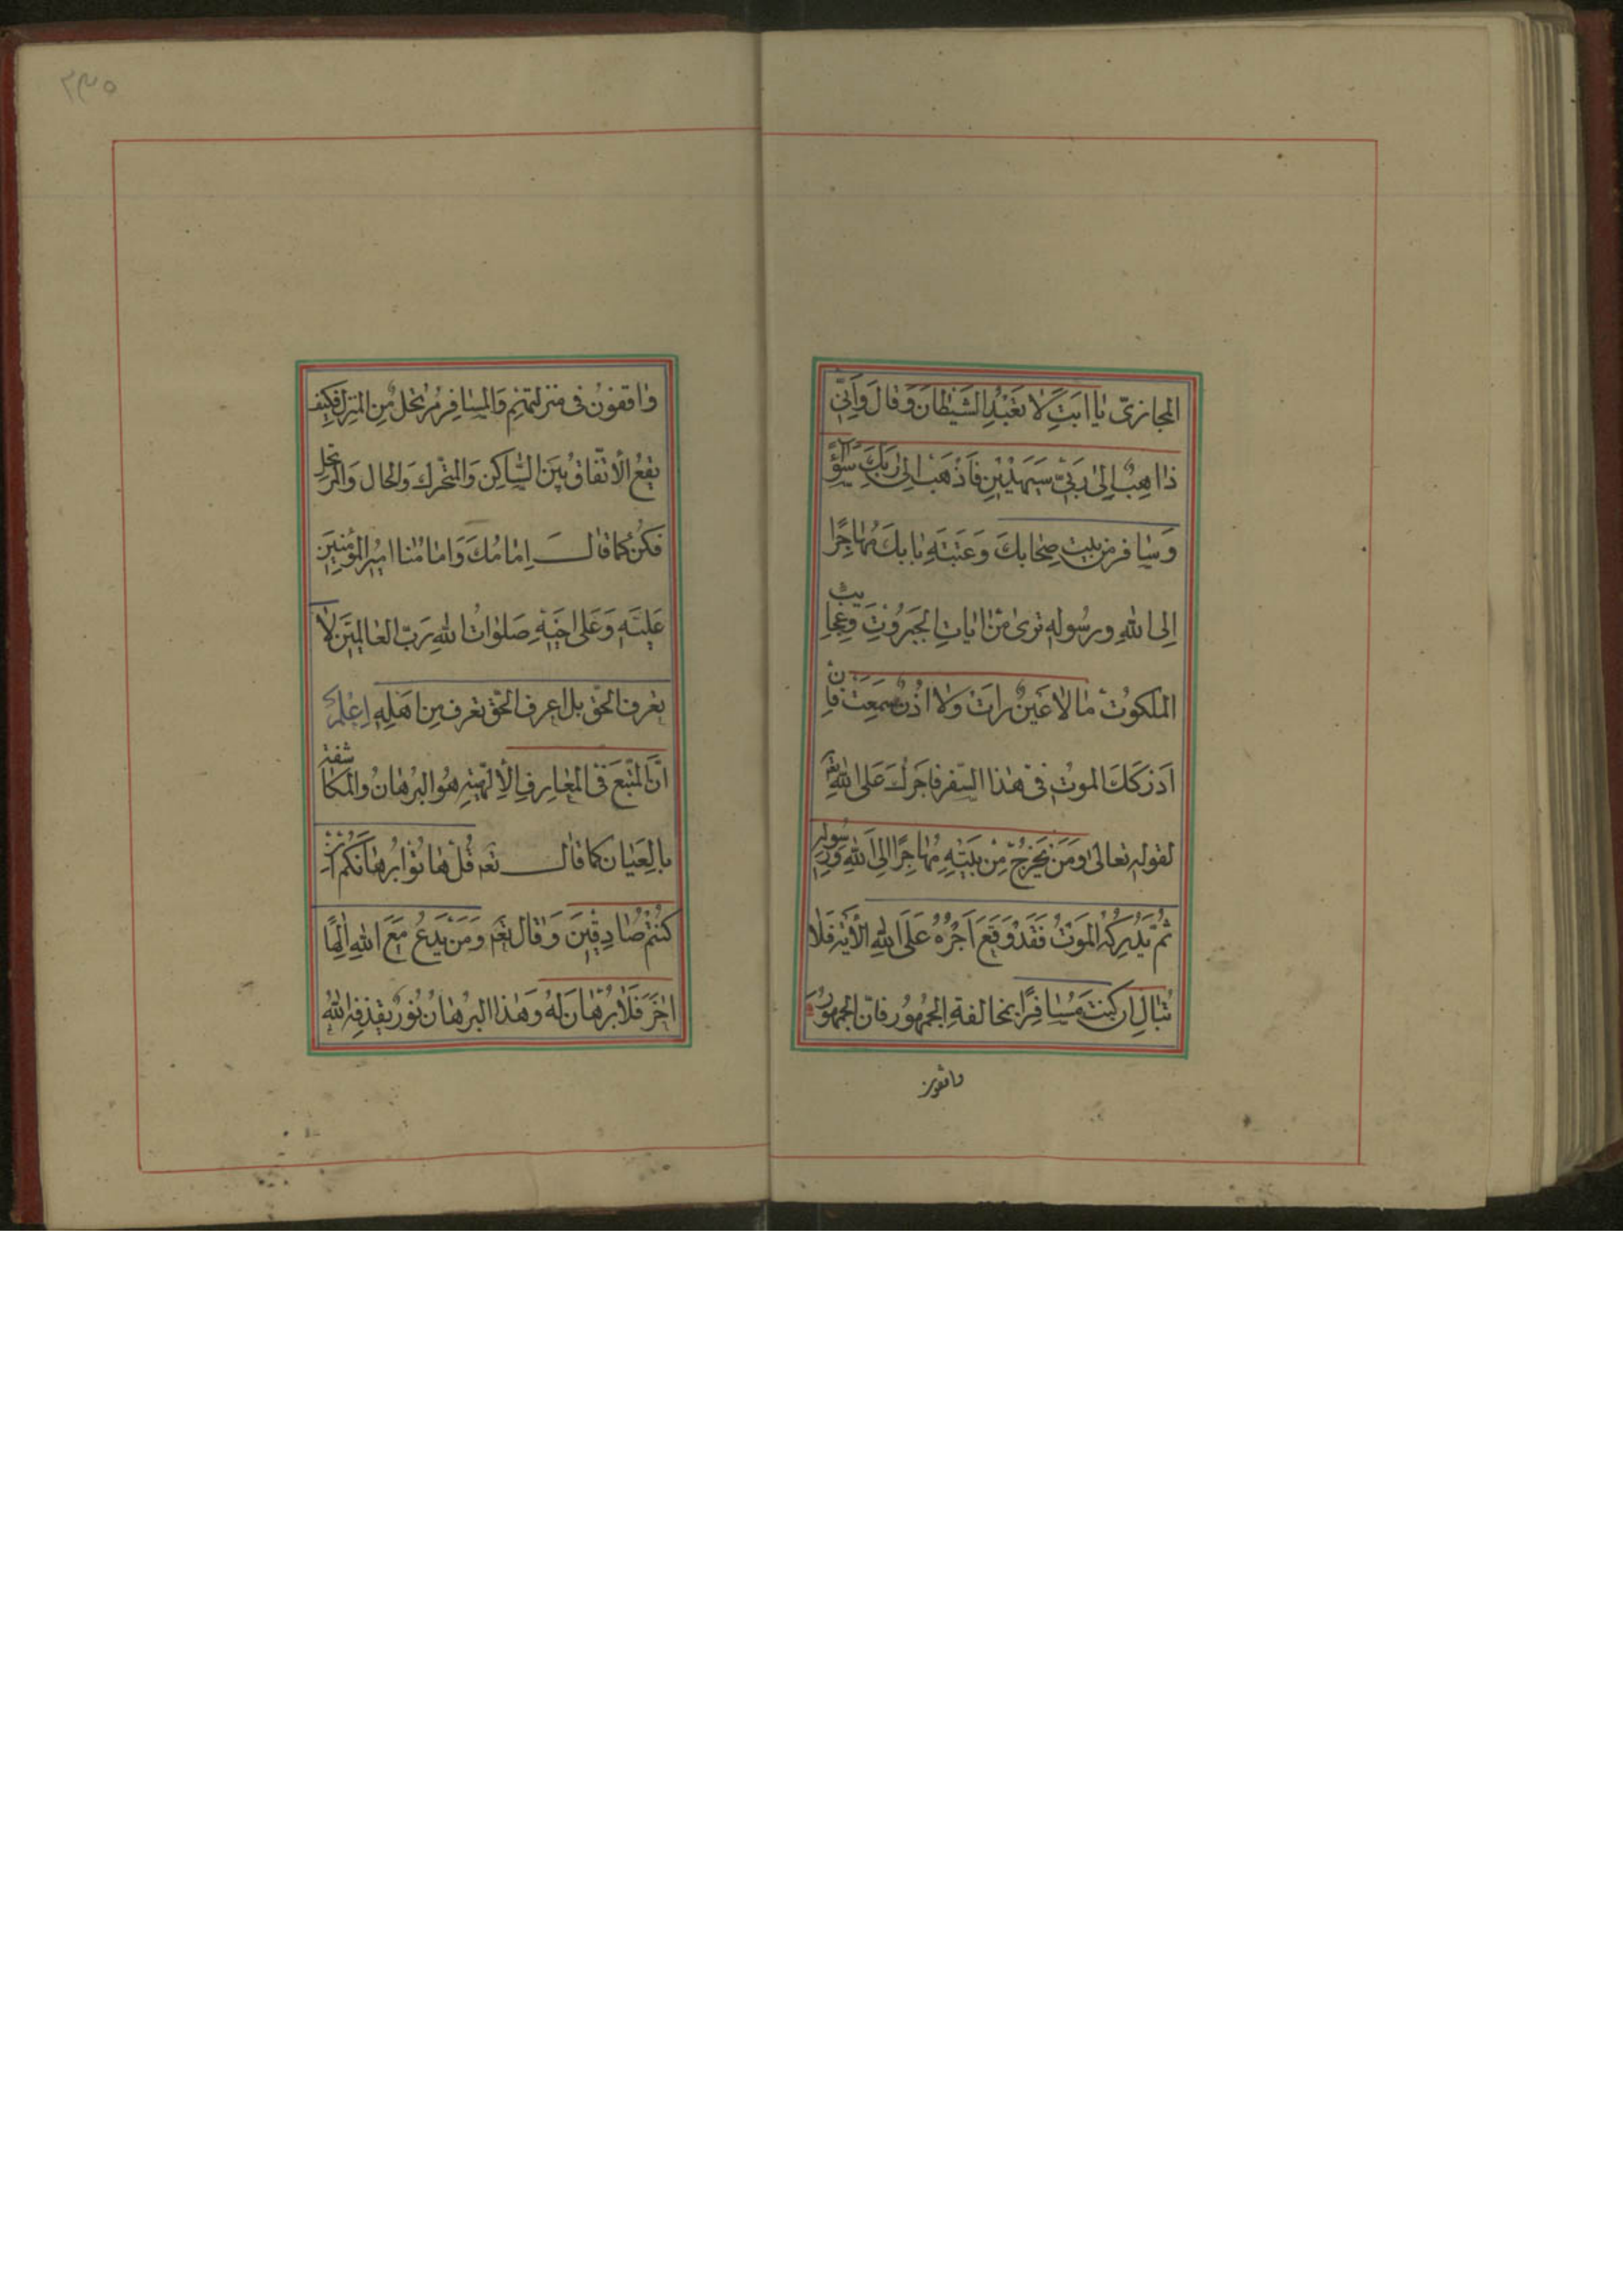 المجازىّ يا ابَتِ لا تَعْبُدِ الشَيْطانَ وَقالَ وَاِنّى
ذاهِبٌ اِلىٰ رَبّى سَيَهْدينِ فَاذْهَبْ اِلىٰ رَبِّكَ
وَسٰافر من بيت حِجٰابكَ وَعَتبَةِ بٰابكَ مُهٰاجِرًا
اِلى اللهِ ورسُولهِ ترى منْ اٰيٰاتِ الجَبَرُوتِ وعجايب
الملكوُت مٰا لٰا عَيْنٌ راَتْ ولٰا اذُنٌ سمَعَتْ فان
اَدْركَكَ الموتُ فى هٰذا السّفر فاَجرُكَ عَلى اللهِ
لقولهِ تعالى وَمَنْ يَخْرُجْ مِنْ بَيْتِهِ مُهاجِرًا اِلىَ اللهِ وَرسُولهِ
ثُمَّ يُدْرِكْهُ الموَتُ فَقَدْ وَقَعَ اَجْرُهُ عَلَى اللهِ الاٰية فَلٰا
تُبٰالِ ان كنتَ مُسٰافِرًا بمخالفةِ الجمْهُور فانّ الجمهُورَ
واقفون
٢٣٥
وٰاقفوُن فى منزلتهمْ وَالمسٰافِرُ مُرْتحلٌ مِن المنزل فكيْف
يقعُ الْاتّفاقُ بيَن السّاكِن وَالمتحّرك وَالحال وَالمرتحل
فكُنْ كما قٰال اِمٰامُكَ وَامٰامُنٰا اميُر المؤمنِينَ
عَليَهِ وَعَلىٰ صَلوٰاتُ اللهِ رَبّ العٰالمِيَن لٰا
تعْرف الحّق بل اعرف الحّق تعْرف اهَلِه اِعْلمْ
انَّ المتّبعَ فى المعٰارِفِ الْاِلٰهّيةِ هُوَ البرُهٰانُ والمكاشفة
بالعَيٰان كما قٰال تعٰ قُلْ هٰاتُوا بُرهٰانَكُم اِنْ
كنتُمْ صٰادِقيَن وَقٰال تعٰ وَمَنْ يَدْعُ مَعَ اللهِ اِلٰهًا
اٰخَرَ لٰا بُرْهٰانَ لَهُ وَهٰذا البرُهٰانُ نُورٌ يقذفهُ اللهُ